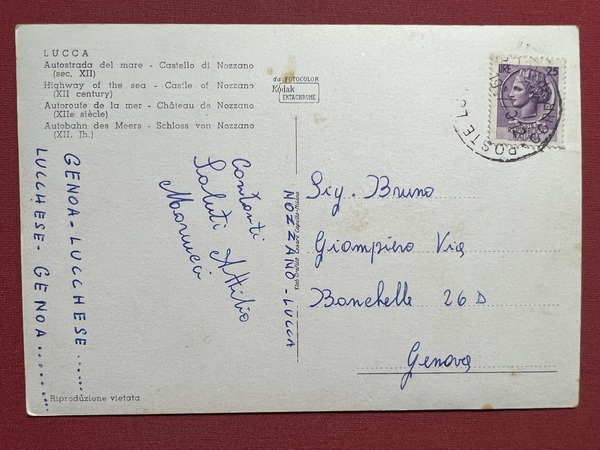 LUCCA
Autostrada del mare - Castello di Nozzano
(sec. XII)
Highway of the sea - Castle of Nozzano
(XII century)
Autoroute de la mer - Château de Nozzano
(XIIe siècle)
Autobahn des Meers - Schloss von Nozzano
(XII. Jh.)
da FOTOCOLOR
Kodak
EKTACHROME
LIRE 25
POSTE
Contanti
Saluti Attilio
Marucci
NOZZANO - LUCCA
GENOA - LUCCHESE......
LUCCHESE - GENOA........
Sig. Bruno
Giampiero Via
Banchelle 26 D
Genova
Riproduzione vietata